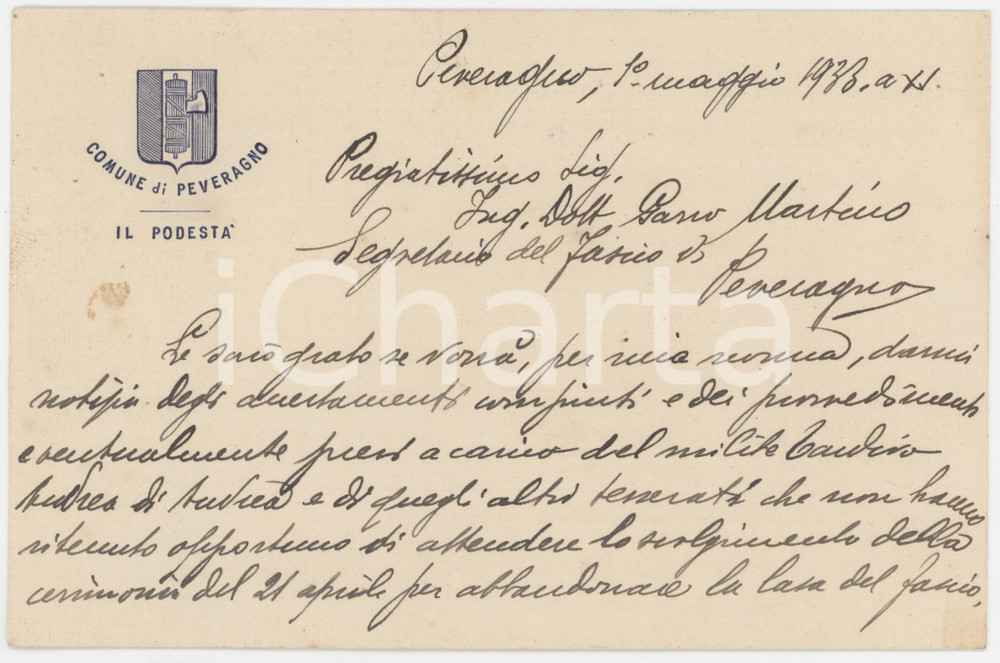 Peveragno, 1° maggio 1933. a XI.
COMUNE di PEVERAGNO
IL PODESTA'
Pregiatissimo Sig.
Ing. Dott Martino
Segretario del Fascio di
Peveragno
iCharta
Le sarò grato se vorrà, per mia norma, darmi
notizia degli accertamenti compiuti e dei provvedimenti
eventualmente presi a carico del milite
Andrea di Andrea e di quegli altri tesserati che non hanno
ritenuto opportuno di attendere lo svolgimento della
cerimonia del 21 aprile per abbandonare la Casa del Fascio.